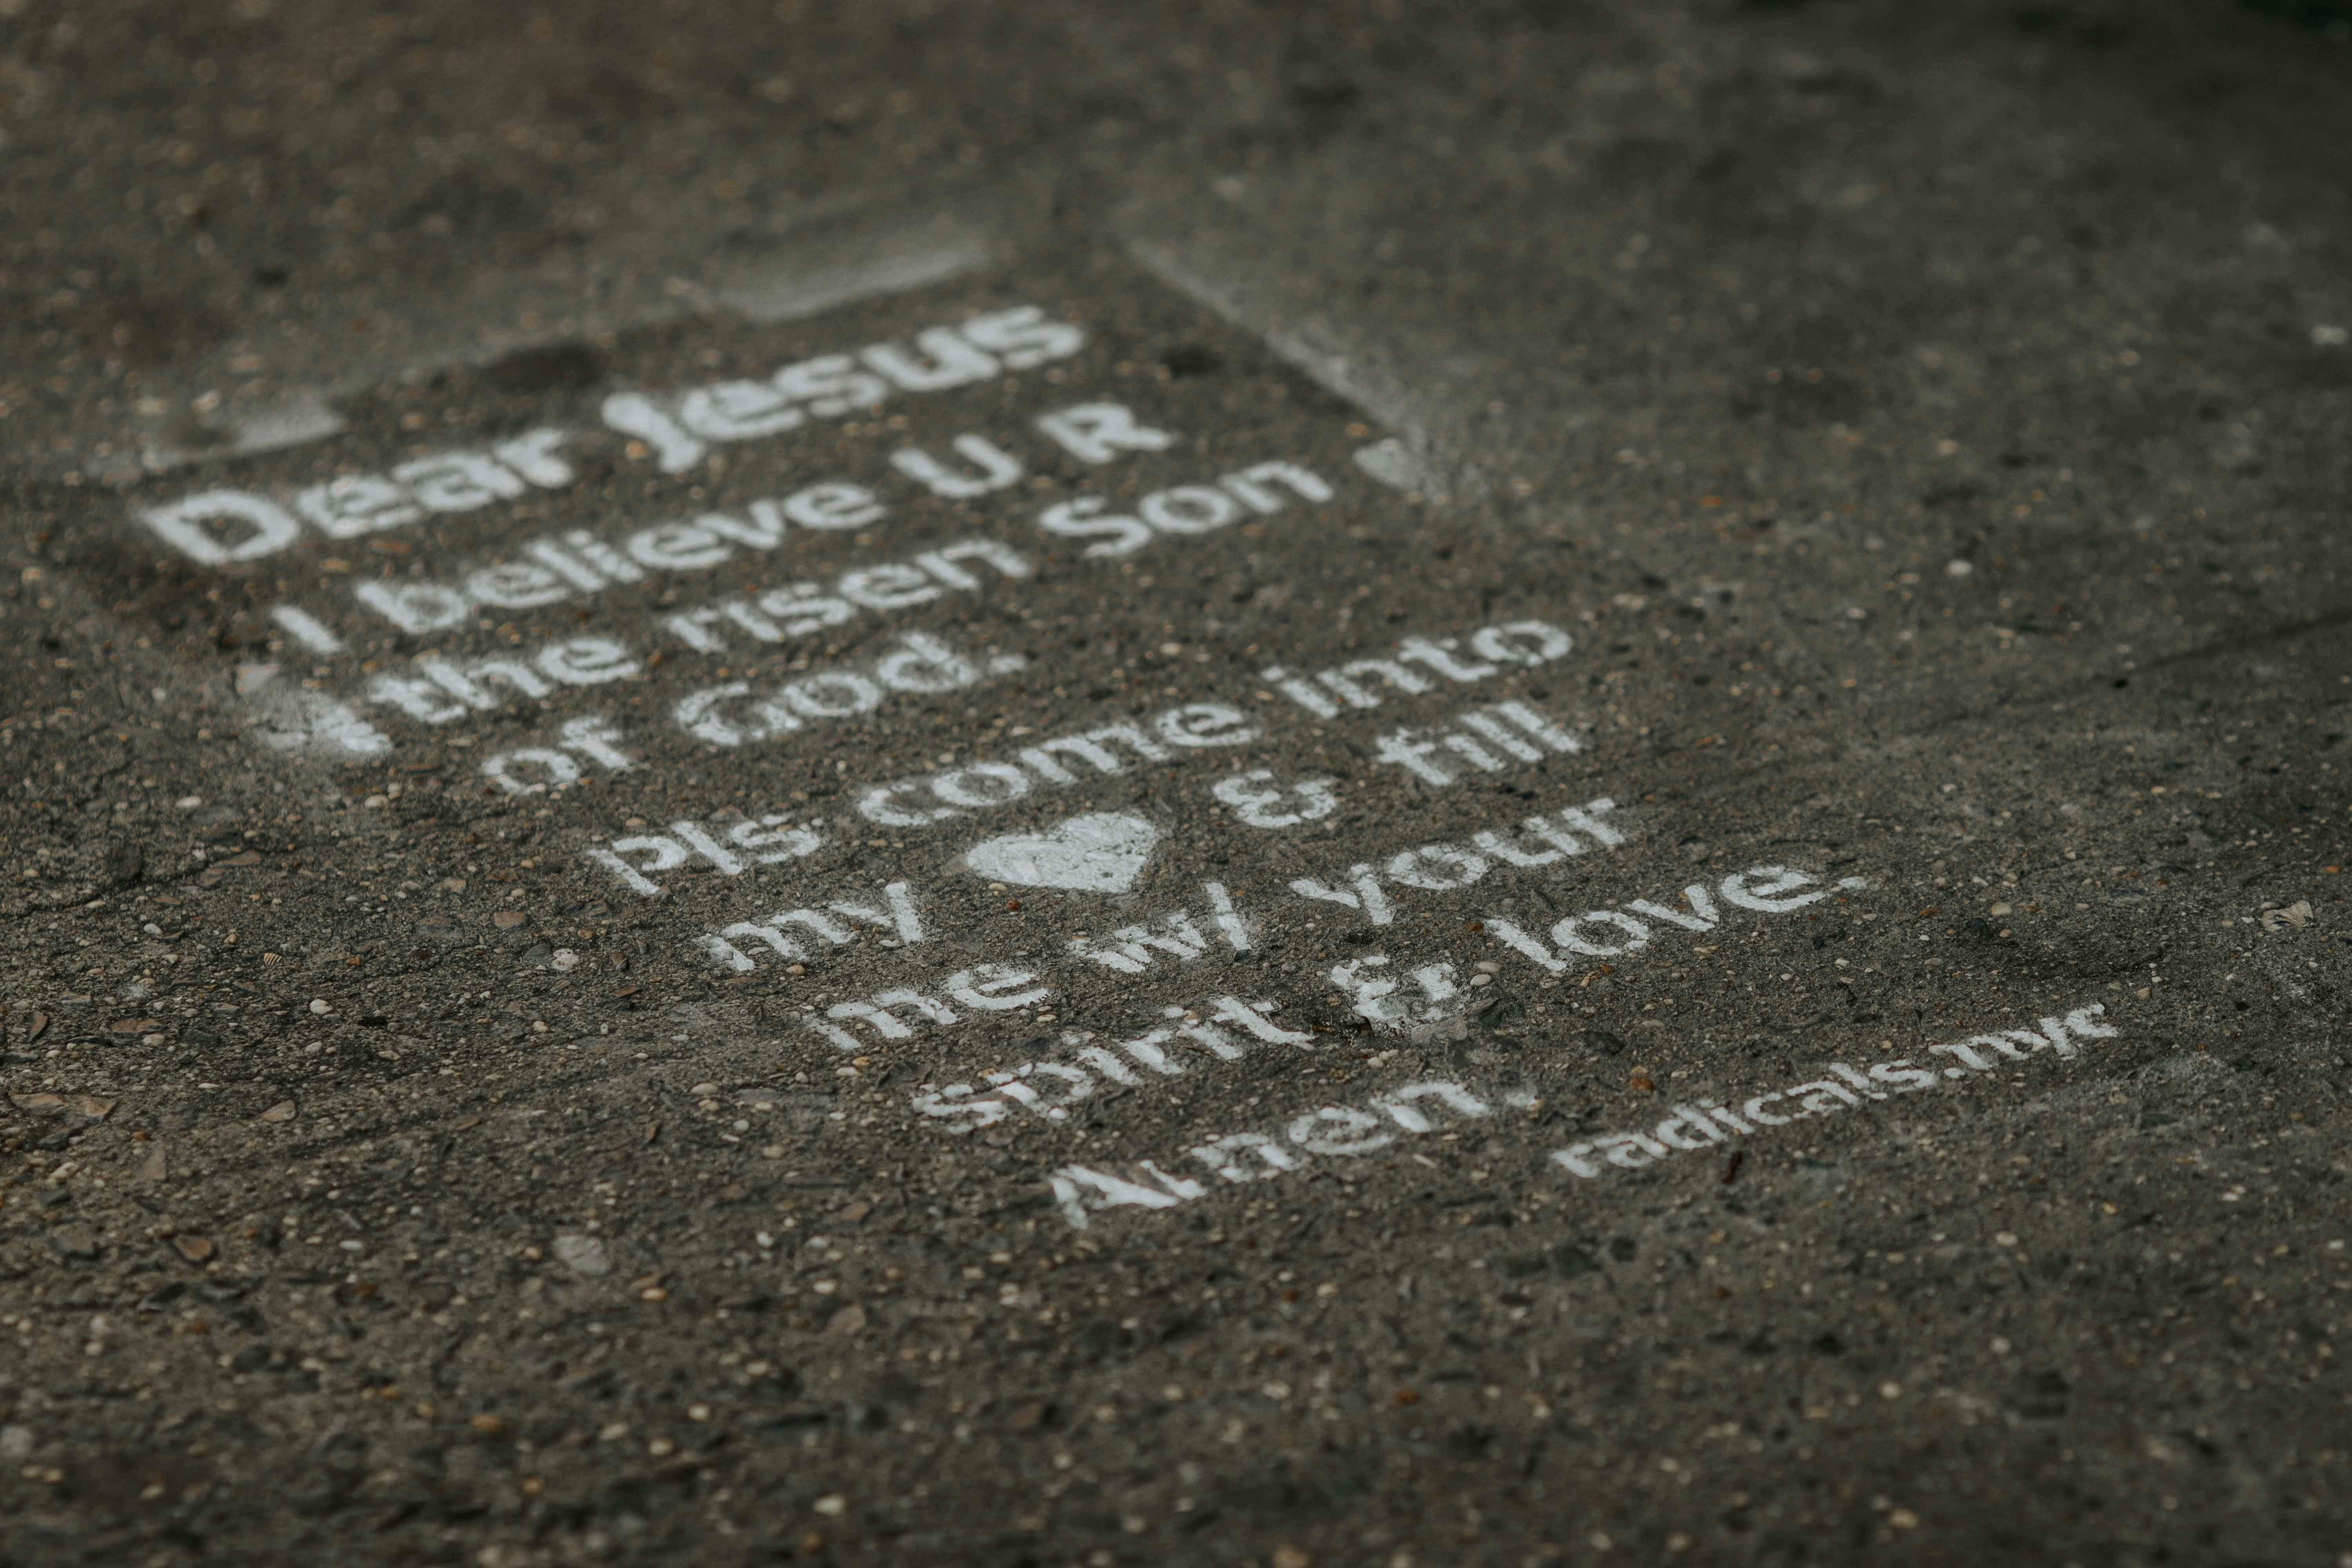 Dear Jesus
I believe U R
the risen Son
of God.
pls come into
my ♥ & fill
me w/ your
spirit & love.
Amen.